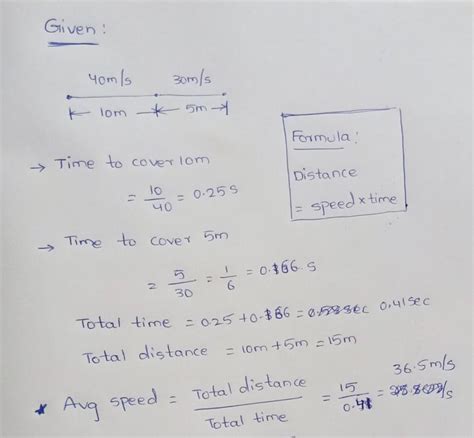 Given :
40m/s 30m/s
10m 5m
Formula :
Distance
= speed × time
→ Time to cover 10m
= 10/40 = 0.25 s
→ Time to cover 5m
= 5/30 = 1/6 = 0.166 s
Total time = 0.25 + 0.166 = 0.41 sec
Total distance = 10m + 5m = 15m
* Avg speed = Total distance / Total time = 15/0.41 = 36.5 m/s